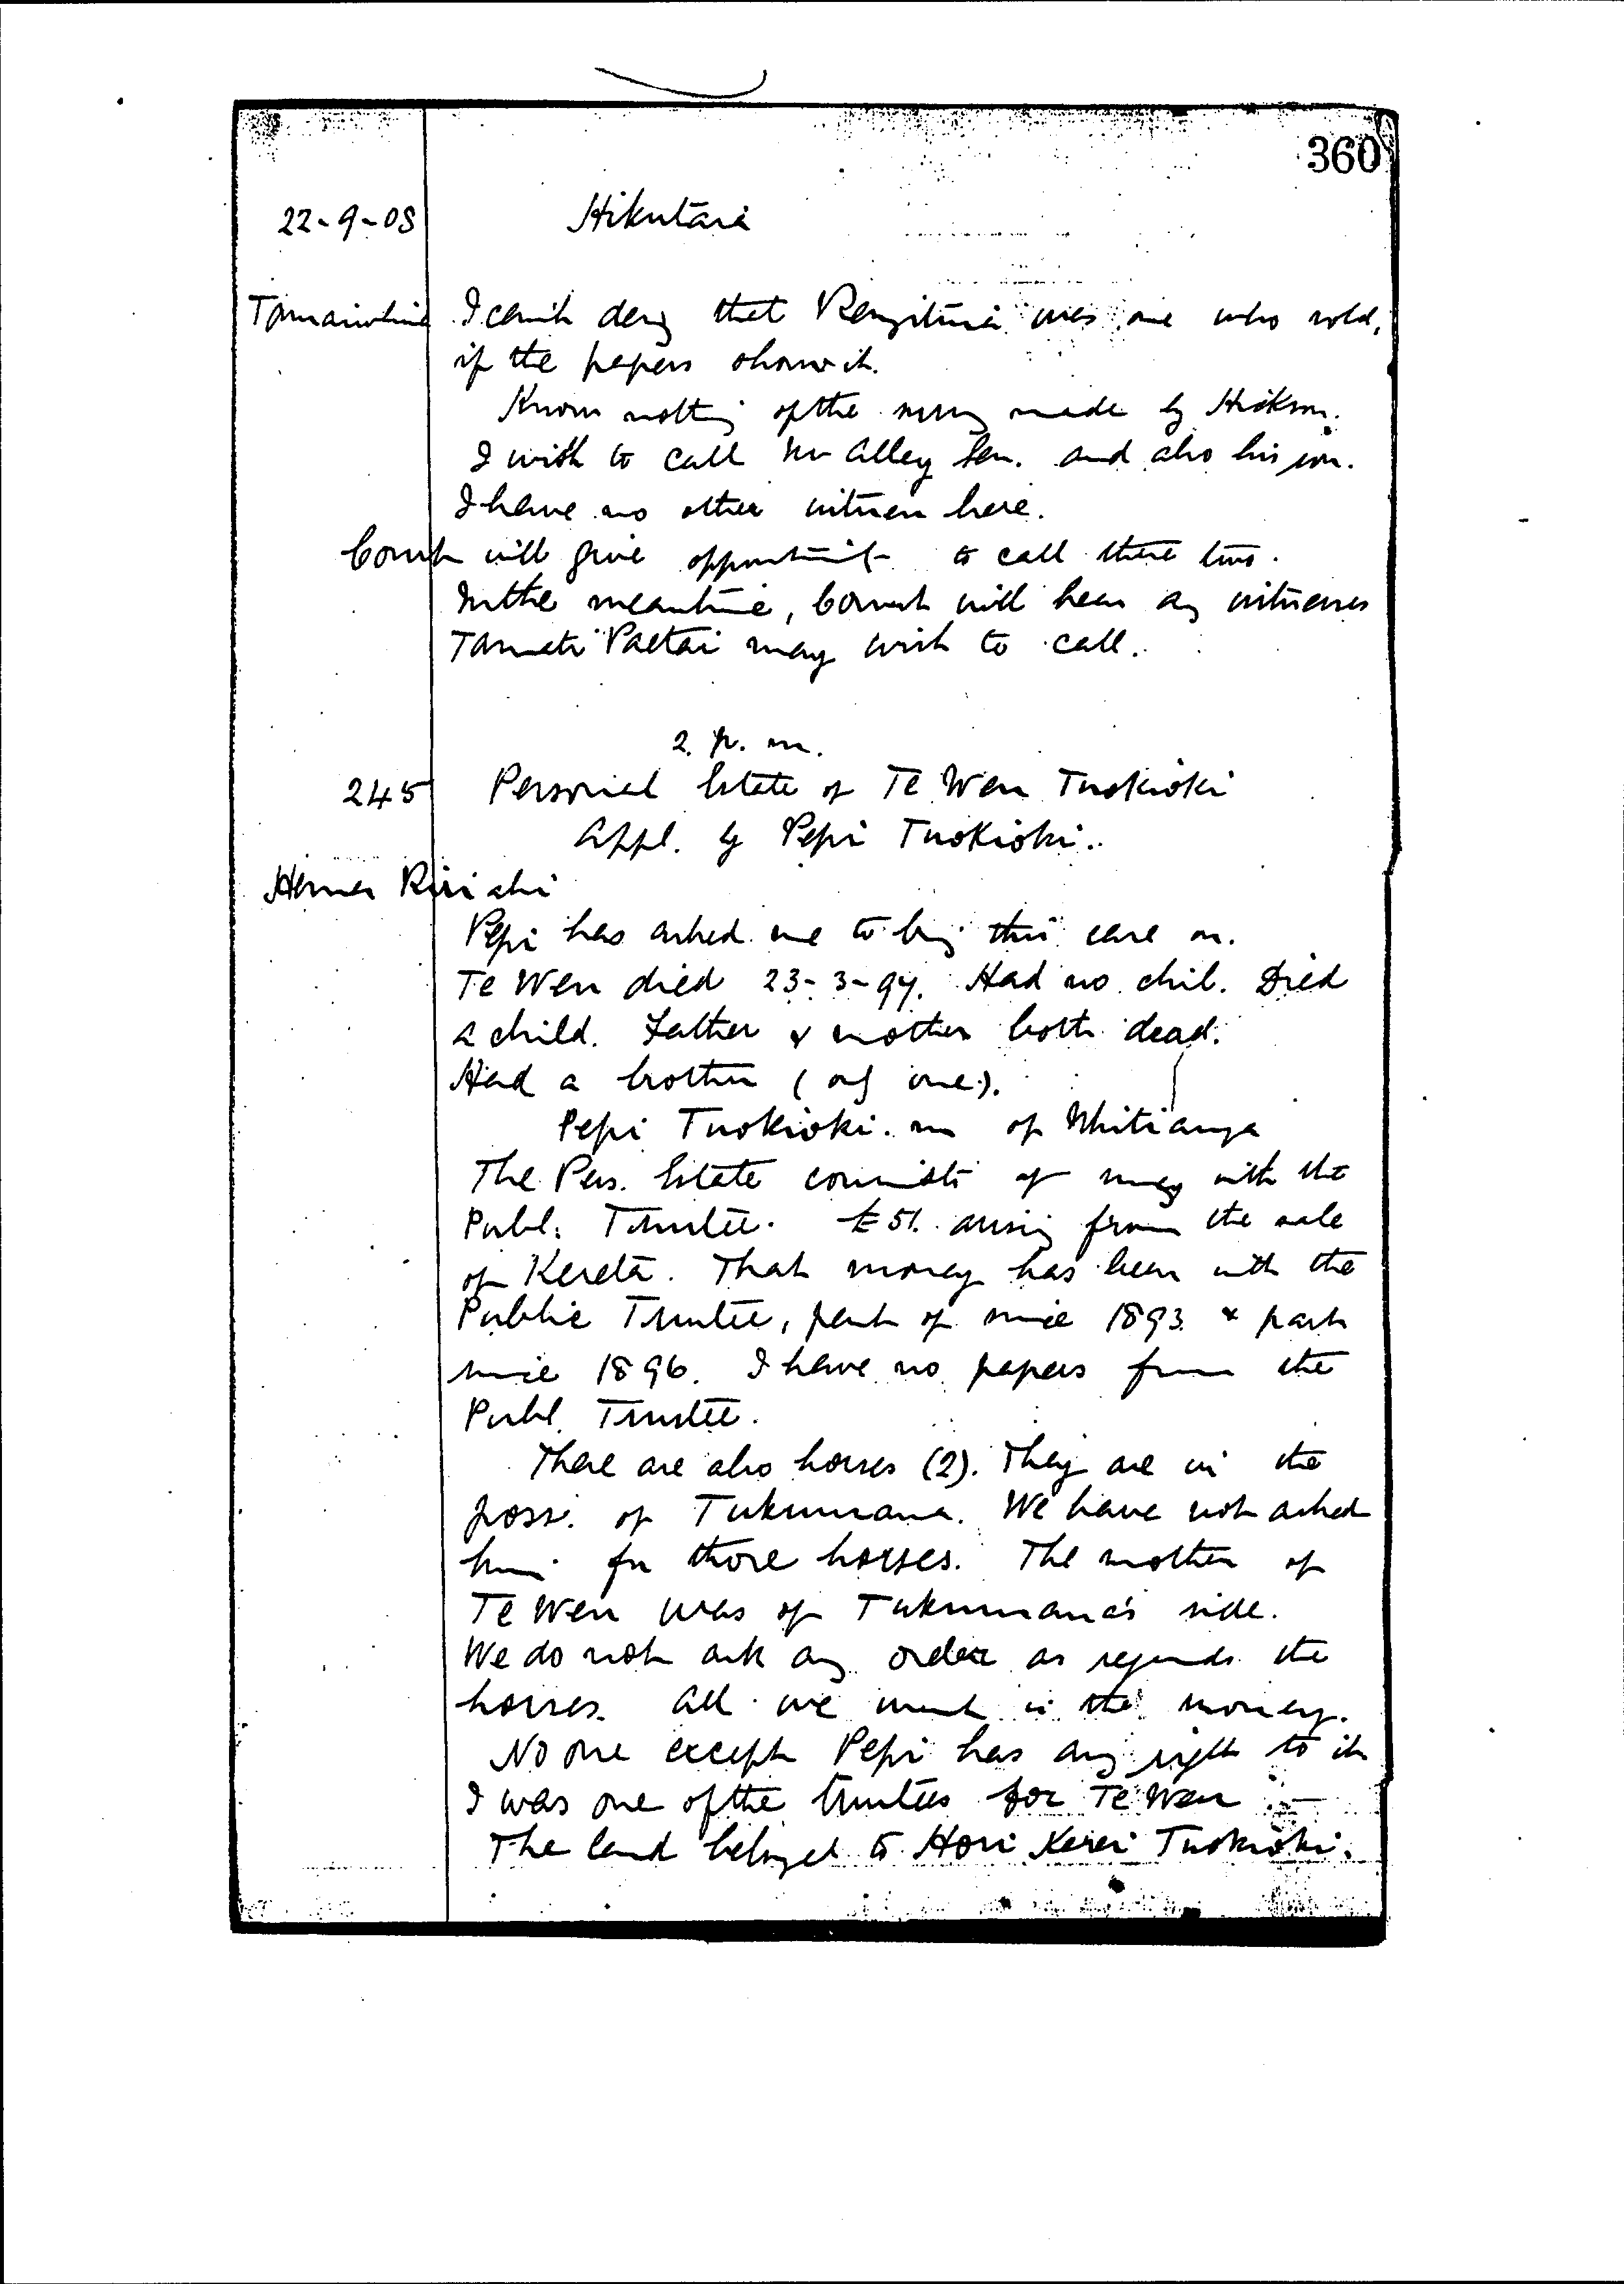 360
22-9-08 Hikutaia
Tamaiwhina I can't deny that Rangituia was one who sold,
if the papers show it.
Know nothing of the survey made by Hickson.
I wish to call Mr Alley Sen. and also his son.
I have no other witness here.
Court will give opportunity to call these two.
In the meantime, Court will hear any witnesses
Tamati Paetai may wish to call.
2. p. m.
245 Personal Estate of Te Weu Tuokioki
Appl. by Pepi Tuokioki.
Ririahi
Pepi has asked me to bring this case on.
Te Weu died 23-3-97. Had no chil. Died
a child. Father & mother both dead.
Had a brother (only one).
Pepi Tuokioki. m of Whitianga
The Pers. Estate consists of money with the
Publ. Trustee. £51. arising from the sale
of Kereta. That money has been with the
Public Trustee, part of since 1893 & part
since 1896. I have no papers from the
Publ. Trustee.
There are also horses (2). They are in the
poss. of Tukumana. We have not asked
him for those horses. The mother of
Te Weu was of Tukumana's side.
We do not ask any order as regards the
horses. All we want is the money.
No one except Pepi has any right to it
I was one of the trustees for Te Weu
The land belonged to Hori Kerei Tuokioki.